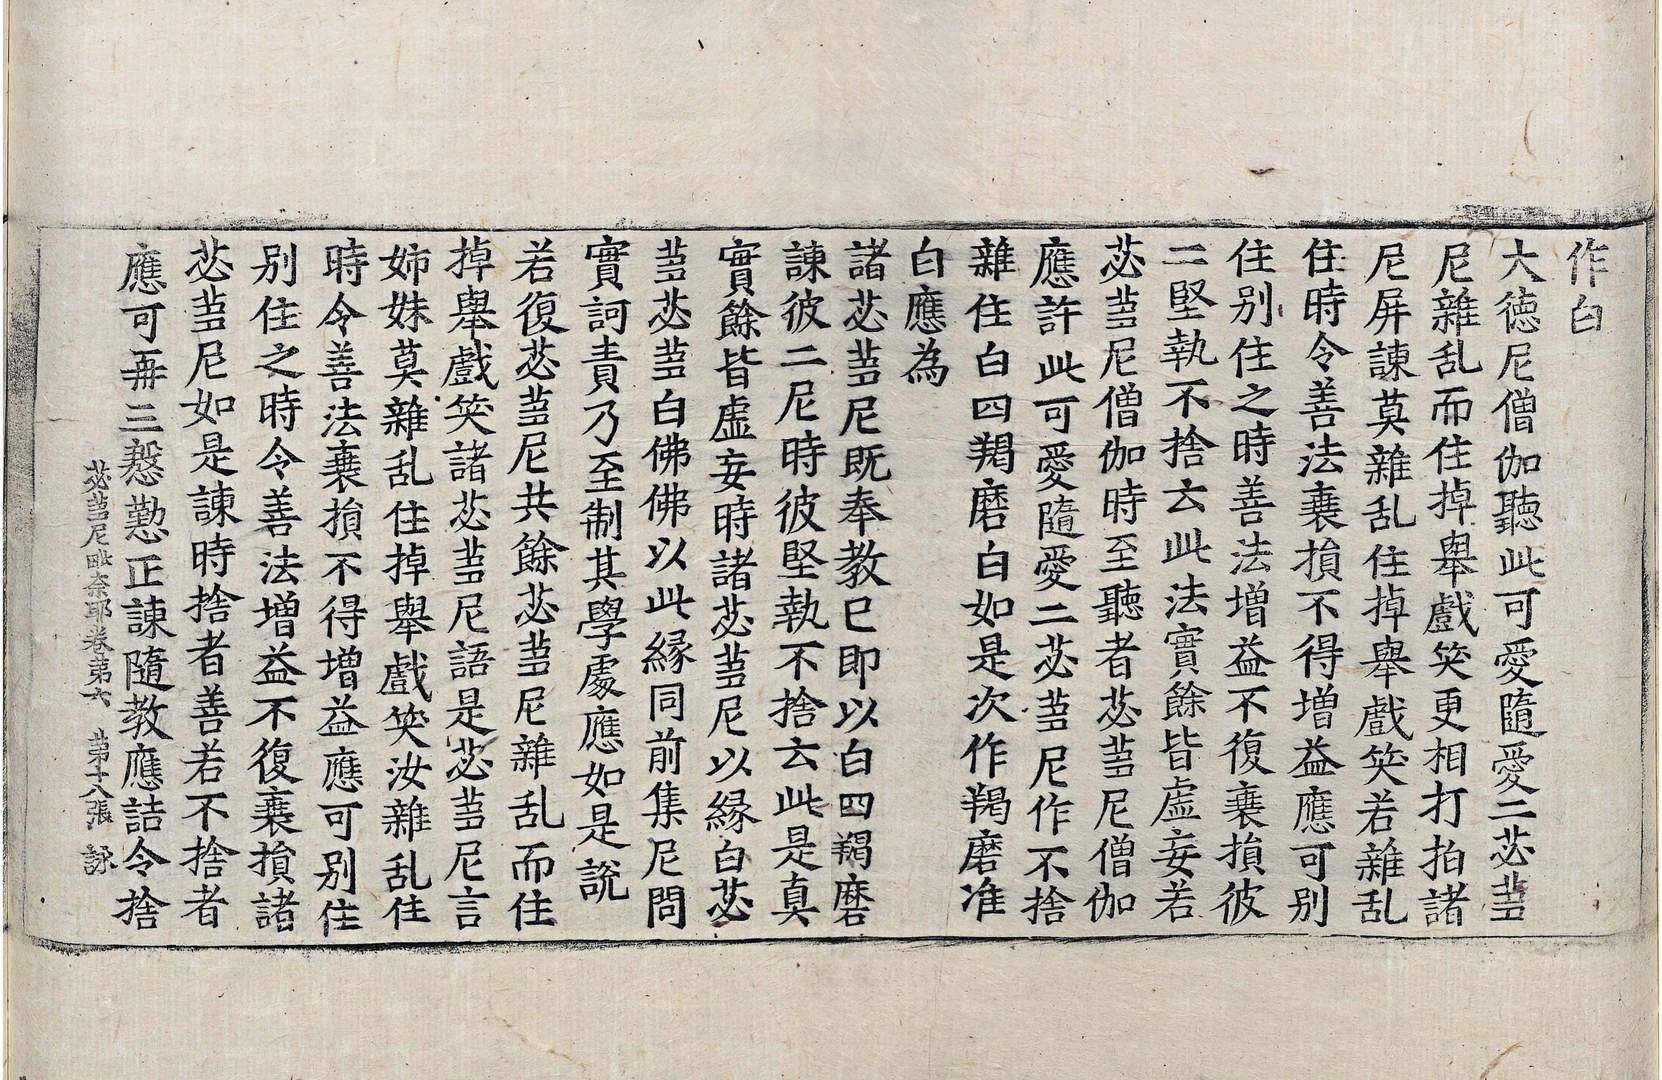 作白
大德尼僧伽聽此可愛隨愛二苾芻
尼雜乱而住掉舉戲笑更相打拍諸
尼屏諫莫雜乱住掉舉戲笑若雜乱
住時令善法衰損不得增益應可別
住別住之時善法增益不復衰損彼
二堅執不捨云此法實餘皆虛妄若
苾芻尼僧伽時至聽者苾芻尼僧伽
應許此可愛隨愛二苾芻尼作不捨
雜住白四羯磨白如是次作羯磨准
白應為
諸苾芻尼既奉教已即以白四羯磨
諫彼二尼時彼堅執不捨云此是真
實餘皆虛妄時諸苾芻尼以緣白苾
芻苾芻白佛佛以此緣同前集尼問
實訶責乃至制其學處應如是說
若復苾芻尼共餘苾芻尼雜乱而住
掉舉戲笑諸苾芻尼語是苾芻尼言
姉妹莫雜乱住掉舉戲笑汝雜乱住
時令善法衰損不得增益應可別住
別住之時令善法增益不復衰損諸
苾芻尼如是諫時捨者善若不捨者
應可再三慇懃正諫隨教應詰令捨
苾芻尼毗奈耶卷第六 第十八張 詠